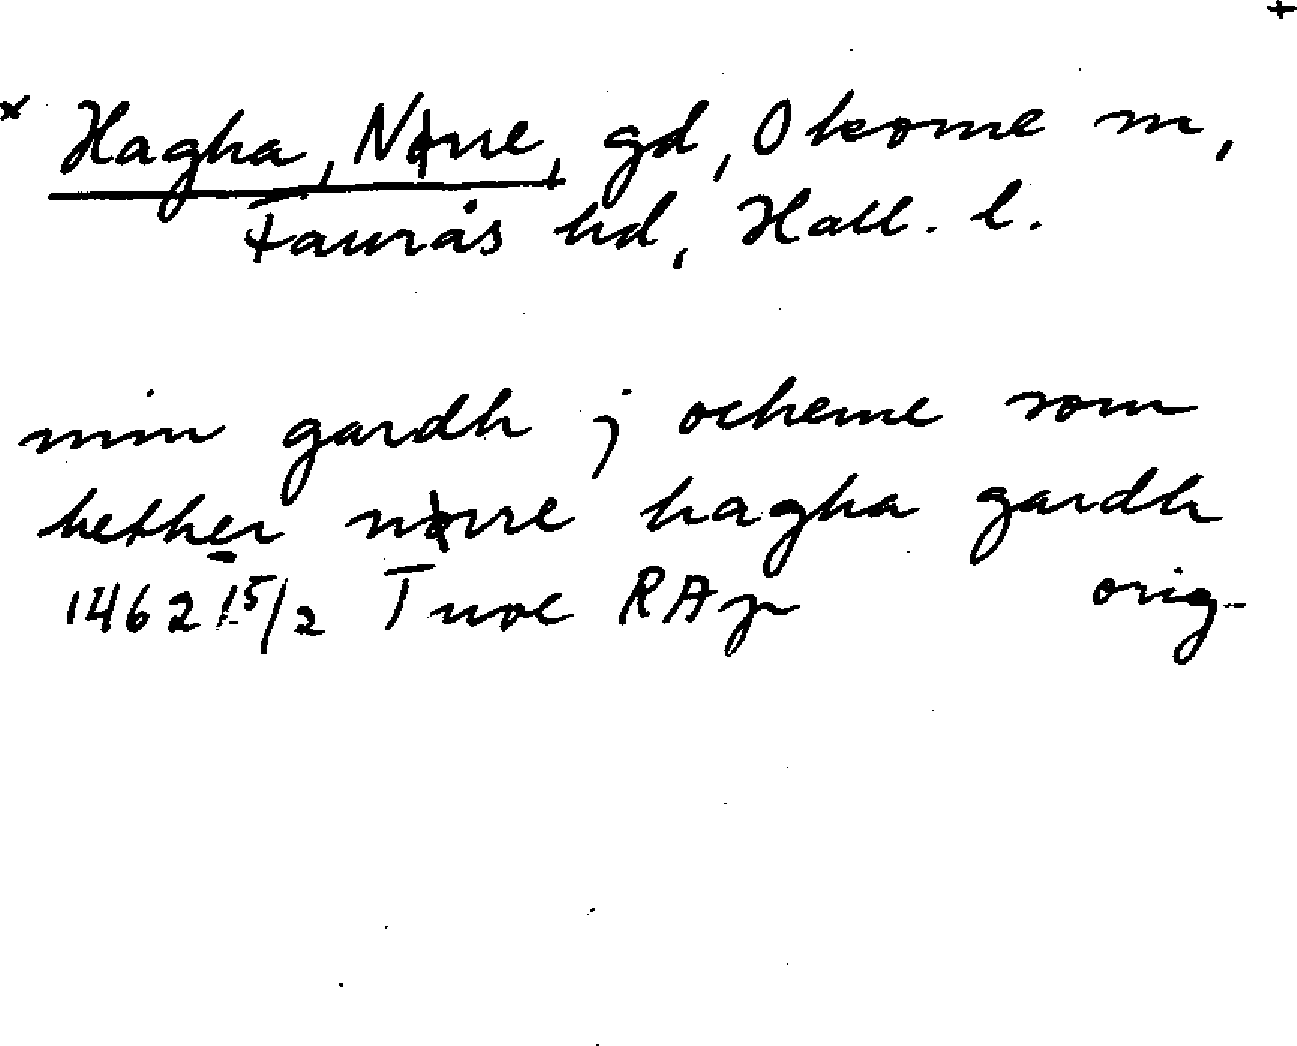 +
× Hagha, Nørre, gd, Okome sn,
Faurås hd, Hall. l.
min gardh j ocheme som
hether nørre hagha gardh
1462 15/2 Tuve RAp orig.